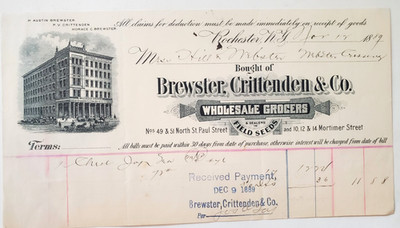 H. AUSTIN BREWSTER.
H. C. CRITTENDEN
HORACE C. BREWSTER.
All claims for deduction must be made immediately on receipt of goods
Rochester, N.Y. Nov 1889
Hill & Webster
Bought of
Brewster, Crittenden & Co.
WHOLESALE GROCERS
& DEALERS IN
FIELD SEEDS
Nos 49 & 51 North St. Paul Street and 10, 12 & 14 Mortimer Street
Terms: All bills must be paid within 30 days from date of purchase, otherwise interest will be charged from date of bill
Chest Jap Tea
11 58
Received Payment,
DEC 9 1889
Brewster, Crittenden & Co.
Per